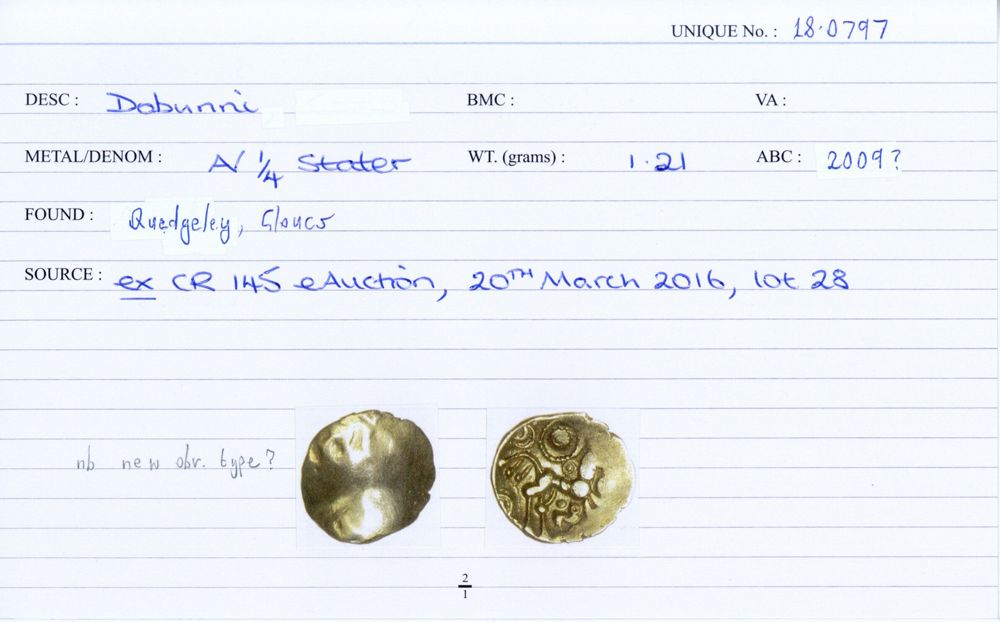 UNIQUE No. : 18·0797
DESC : Dobunni BMC : VA :
METAL/DENOM : A/ 1/4 Stater WT. (grams) : 1·21 ABC : 2009?
FOUND : Quedgeley, Gloucs
SOURCE : ex CR 145 eAuction, 20TH March 2016, lot 28
nb new obv. type?
2
1